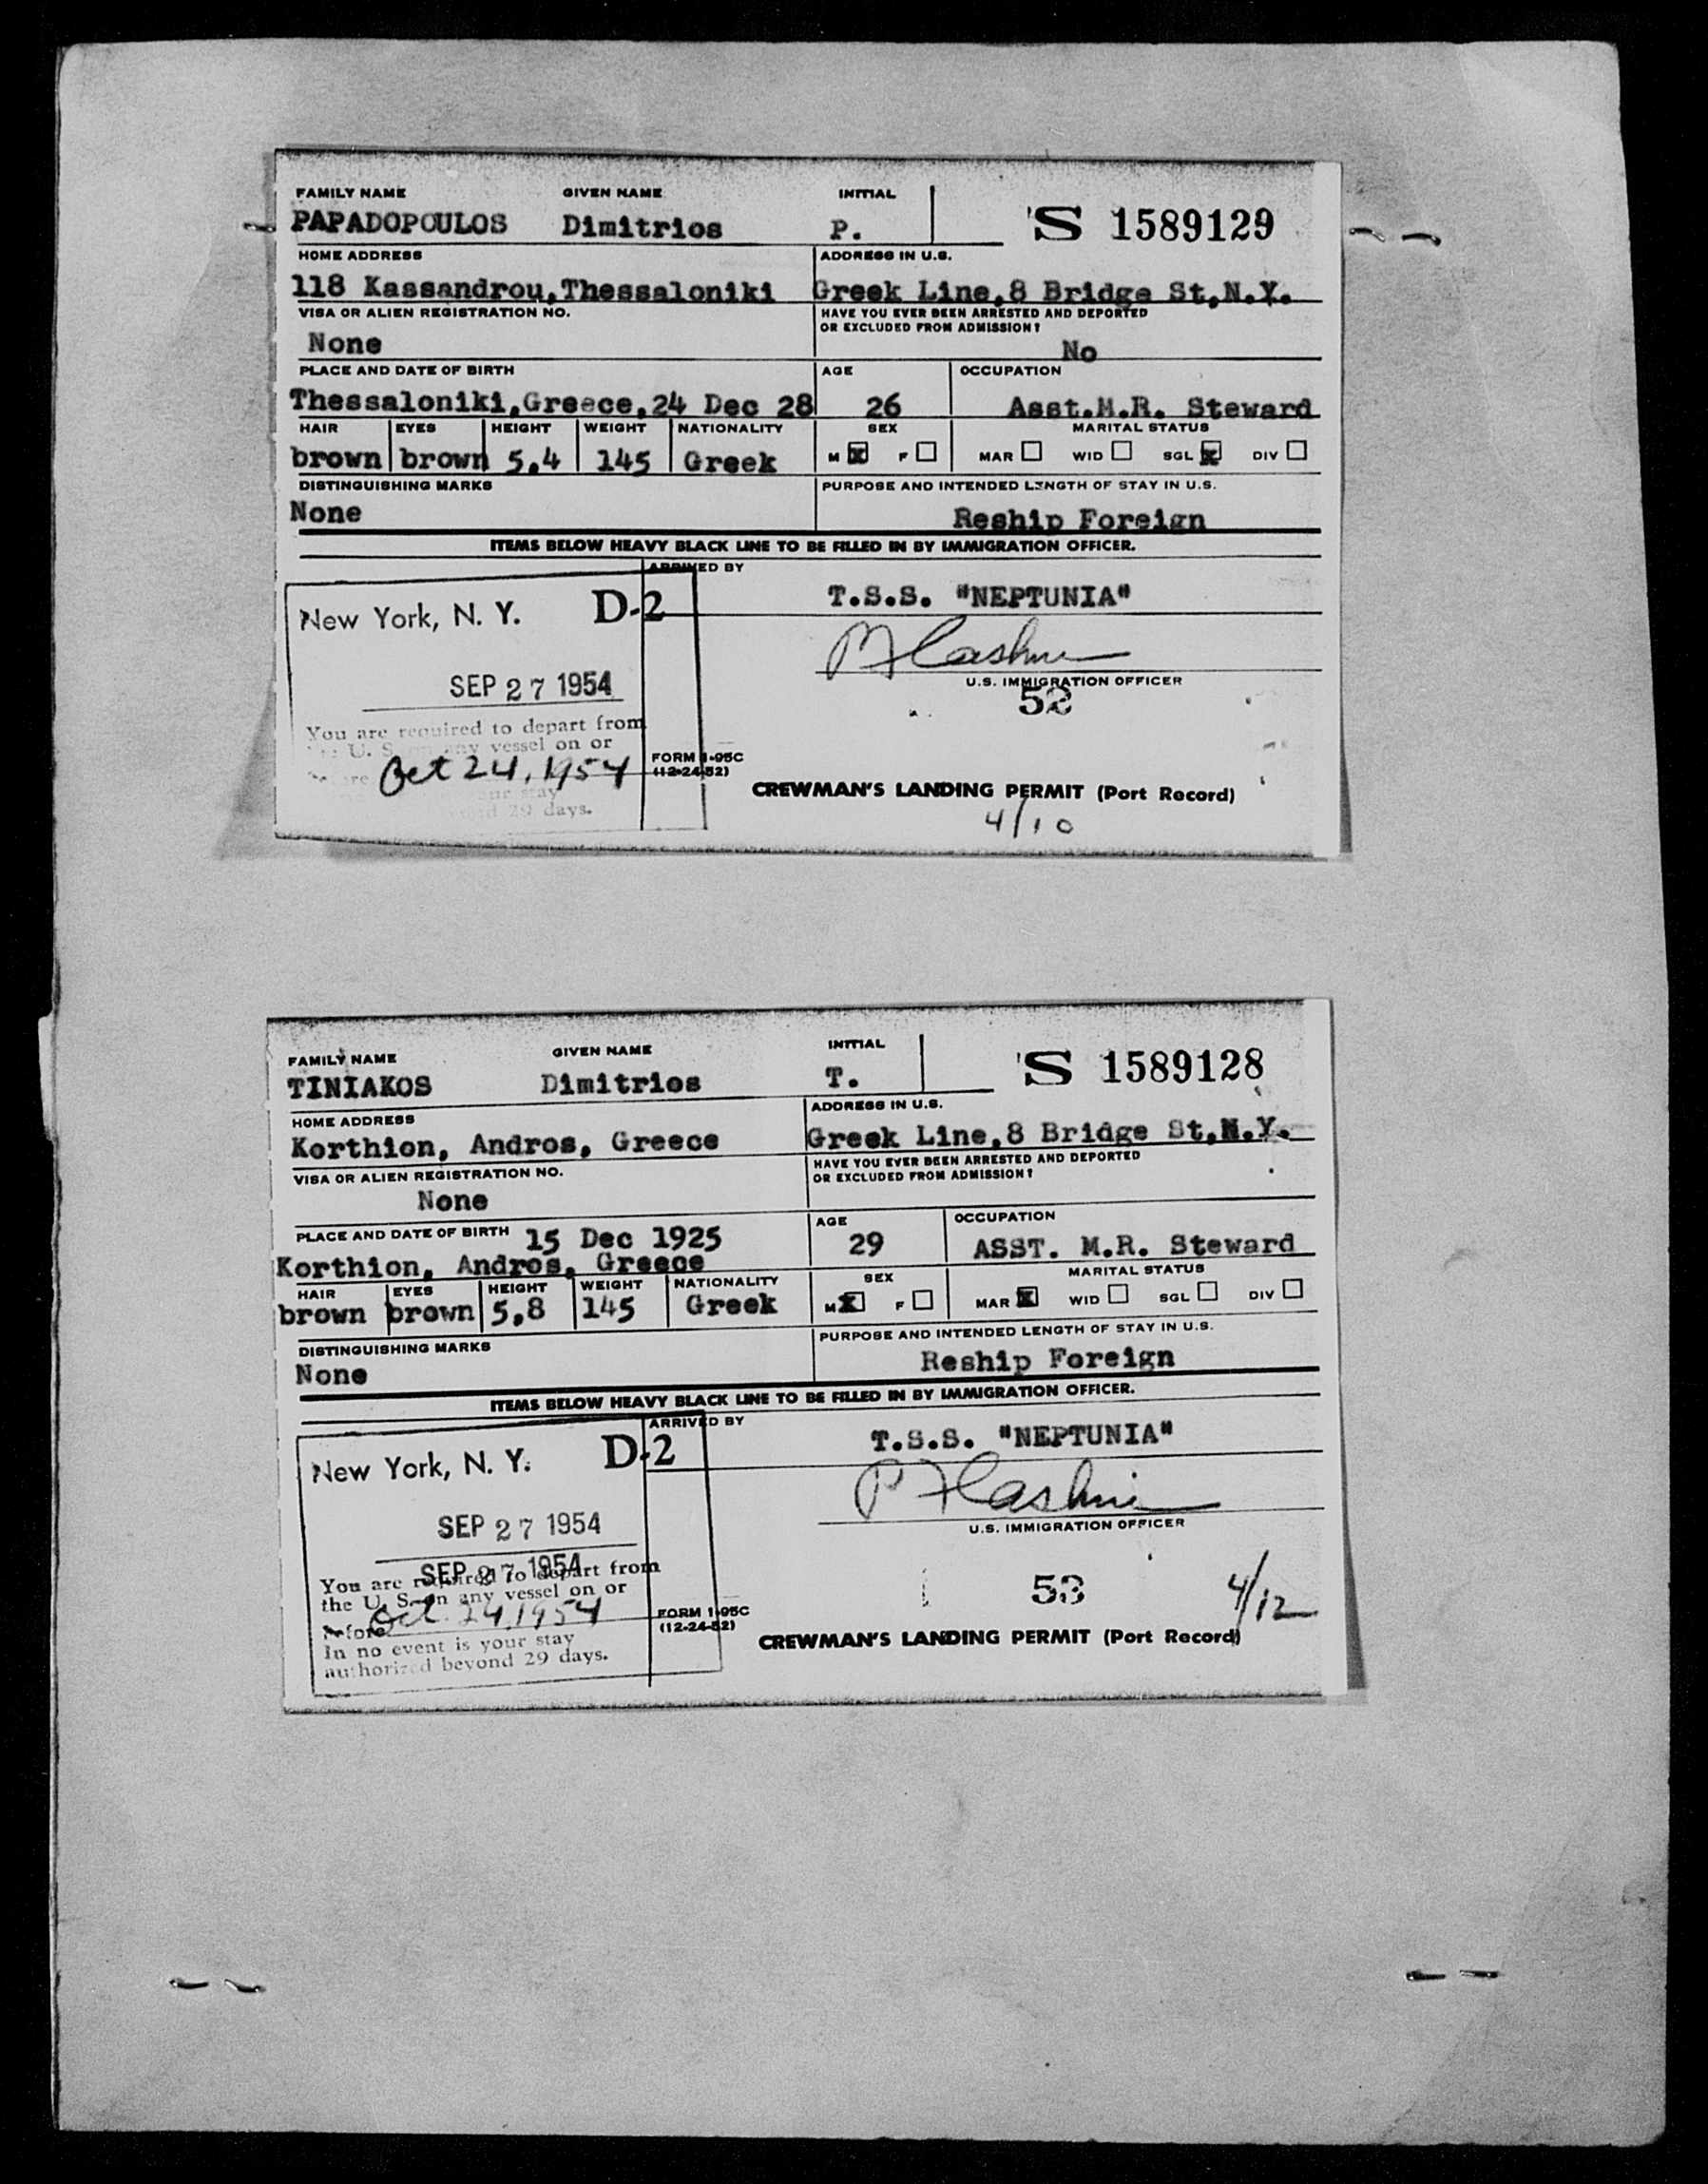 FAMILY NAME GIVEN NAME INITIAL
PAPADOPOULOS Dimitrios P. S 1589129
HOME ADDRESS ADDRESS IN U.S.
118 Kassandrou,Thessaloniki Greek Line,8 Bridge St,N.Y.
VISA OR ALIEN REGISTRATION NO. HAVE YOU EVER BEEN ARRESTED AND DEPORTED
OR EXCLUDED FROM ADMISSION?
None No
PLACE AND DATE OF BIRTH AGE OCCUPATION
Thessaloniki,Greece,24 Dec 28 26 Asst.M.R. Steward
HAIR EYES HEIGHT WEIGHT NATIONALITY SEX MARITAL STATUS
brown brown 5,4 145 Greek M X F MAR WID SGL X DIV
DISTINGUISHING MARKS PURPOSE AND INTENDED LENGTH OF STAY IN U.S.
None Reship Foreign
ITEMS BELOW HEAVY BLACK LINE TO BE FILLED IN BY IMMIGRATION OFFICER.
ARRIVED BY
New York, N. Y. D-2 T.S.S. "NEPTUNIA"
U.S. IMMIGRATION OFFICER
SEP 27 1954 52
You are required to depart from
U. S. on any vessel on or
Oct 24, 1954 FORM I-95C
(12-24-52)
stay
29 days.
CREWMAN'S LANDING PERMIT (Port Record)
4/10
FAMILY NAME GIVEN NAME INITIAL
TINIAKOS Dimitrios T. S 1589128
HOME ADDRESS ADDRESS IN U.S.
Korthion, Andros, Greece Greek Line,8 Bridge St,N.Y.
VISA OR ALIEN REGISTRATION NO. HAVE YOU EVER BEEN ARRESTED AND DEPORTED
OR EXCLUDED FROM ADMISSION?
None
PLACE AND DATE OF BIRTH 15 Dec 1925 AGE OCCUPATION
Korthion, Andros, Greece 29 ASST. M.R. Steward
HAIR EYES HEIGHT WEIGHT NATIONALITY SEX MARITAL STATUS
brown brown 5,8 145 Greek M X F MAR X WID SGL DIV
DISTINGUISHING MARKS PURPOSE AND INTENDED LENGTH OF STAY IN U.S.
None Reship Foreign
ITEMS BELOW HEAVY BLACK LINE TO BE FILLED IN BY IMMIGRATION OFFICER.
ARRIVED BY
New York, N. Y. D-2 T.S.S. "NEPTUNIA"
U.S. IMMIGRATION OFFICER
SEP 27 1954
SEP 27 1954
You are required to depart from
the U. S. on any vessel on or
before Oct. 24, 1954
In no event is your stay
authorized beyond 29 days.
FORM I-95C
(12-24-52)
53 4/12
CREWMAN'S LANDING PERMIT (Port Record)